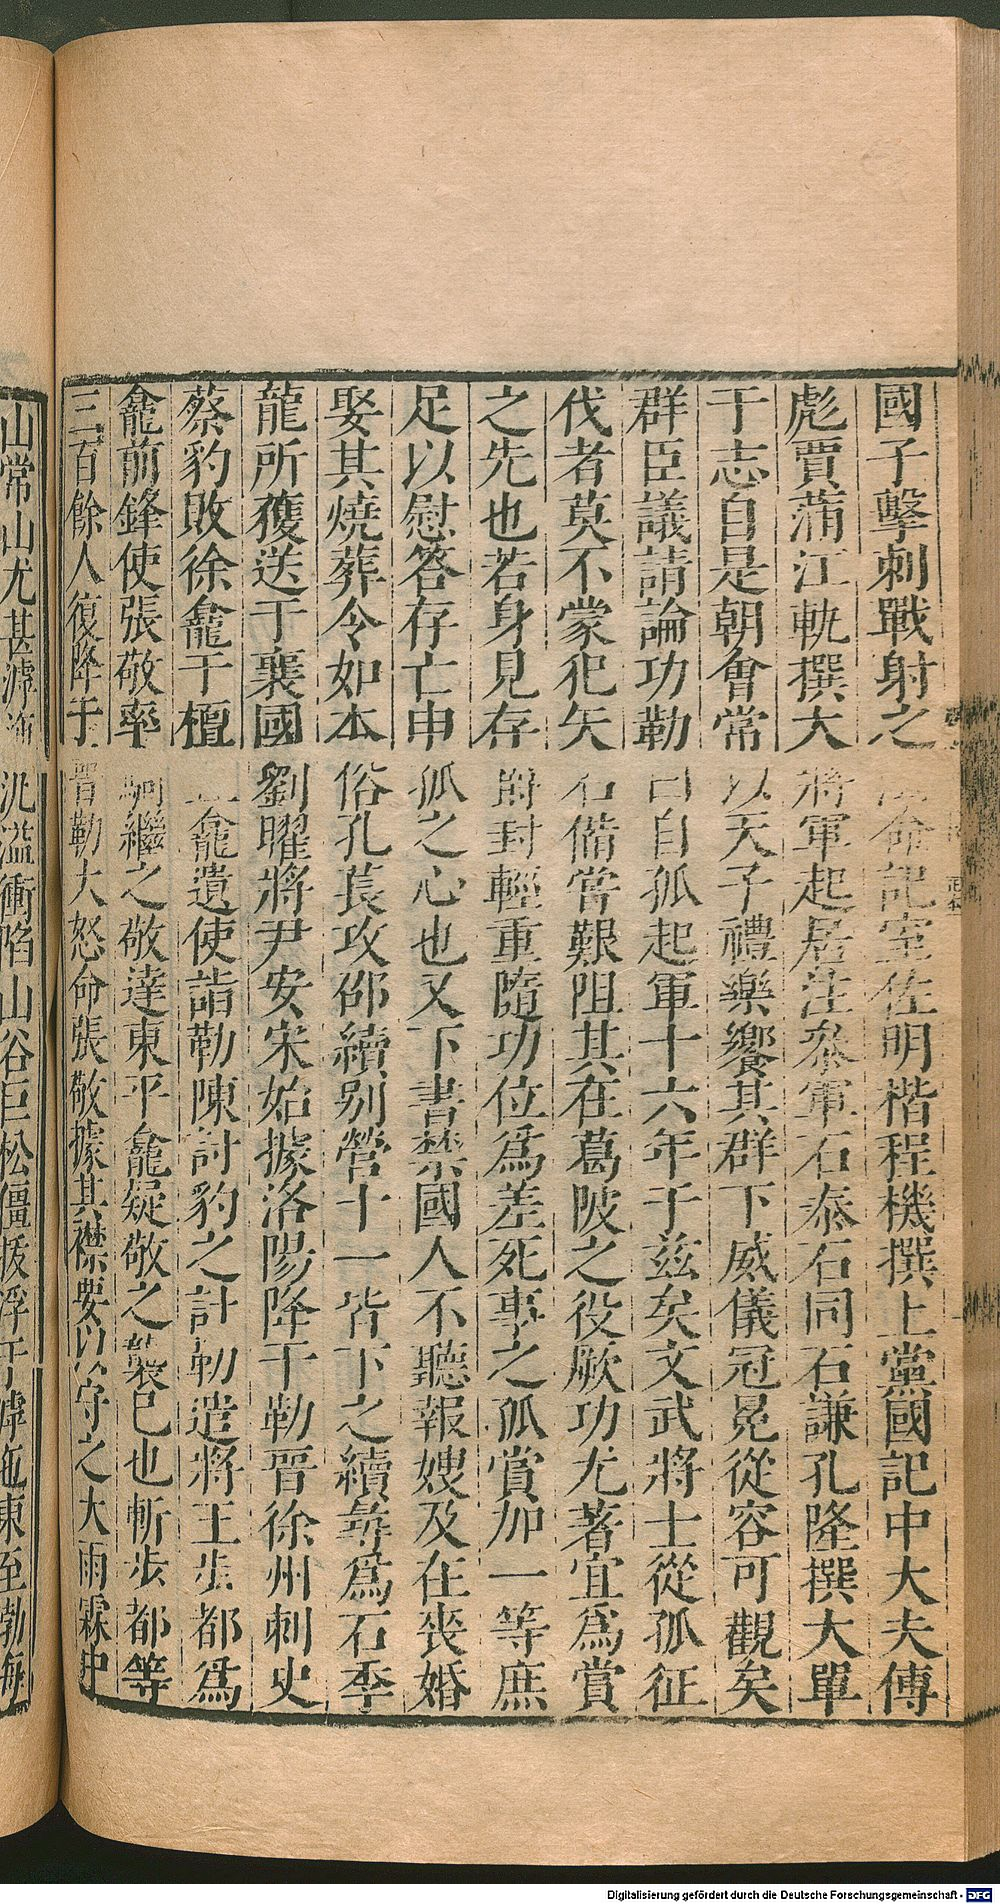 國子擊刺戰射之法命記室佐明楷程機撰上黨國記中大夫傅
彪賈蒲江軌撰大將軍起居注叅軍石泰石同石謙孔隆撰大單
于志自是朝會常以天子禮樂饗其群下威儀冠冕從容可觀矣
群臣議請論功勒曰自孤起軍十六年于兹矣文武將士從孤征
伐者莫不蒙犯矢石備嘗艱阻其在葛陂之役厥功尤著宜爲賞
之先也若身見存爵封輕重隨功位爲差死事之孤賞加一等庶
足以慰答存亡申孤之心也又下書禁國人不聽報嫂及在喪婚
娶其燒葬令如本俗孔萇攻邵續别營十一皆下之續尋爲石季
龍所獲送于襄國劉曜將尹安宋始據洛陽降于勒晉徐州刺史
蔡豹敗徐龕于檀丘龕遣使詣勒陳討豹之計勒遣將王步都爲
龕前鋒使張敬率騎繼之敬達東平龕疑敬之襲巳也斬步都等
三百餘人復降于晉勒大怒命張敬據其襟要以守之大雨霖中
山常山尤甚滹沲汎溢衝陷山谷巨松僵拔浮于滹沲東至渤海
Digitalisierung gefördert durch die Deutsche Forschungsgemeinschaft - DFG